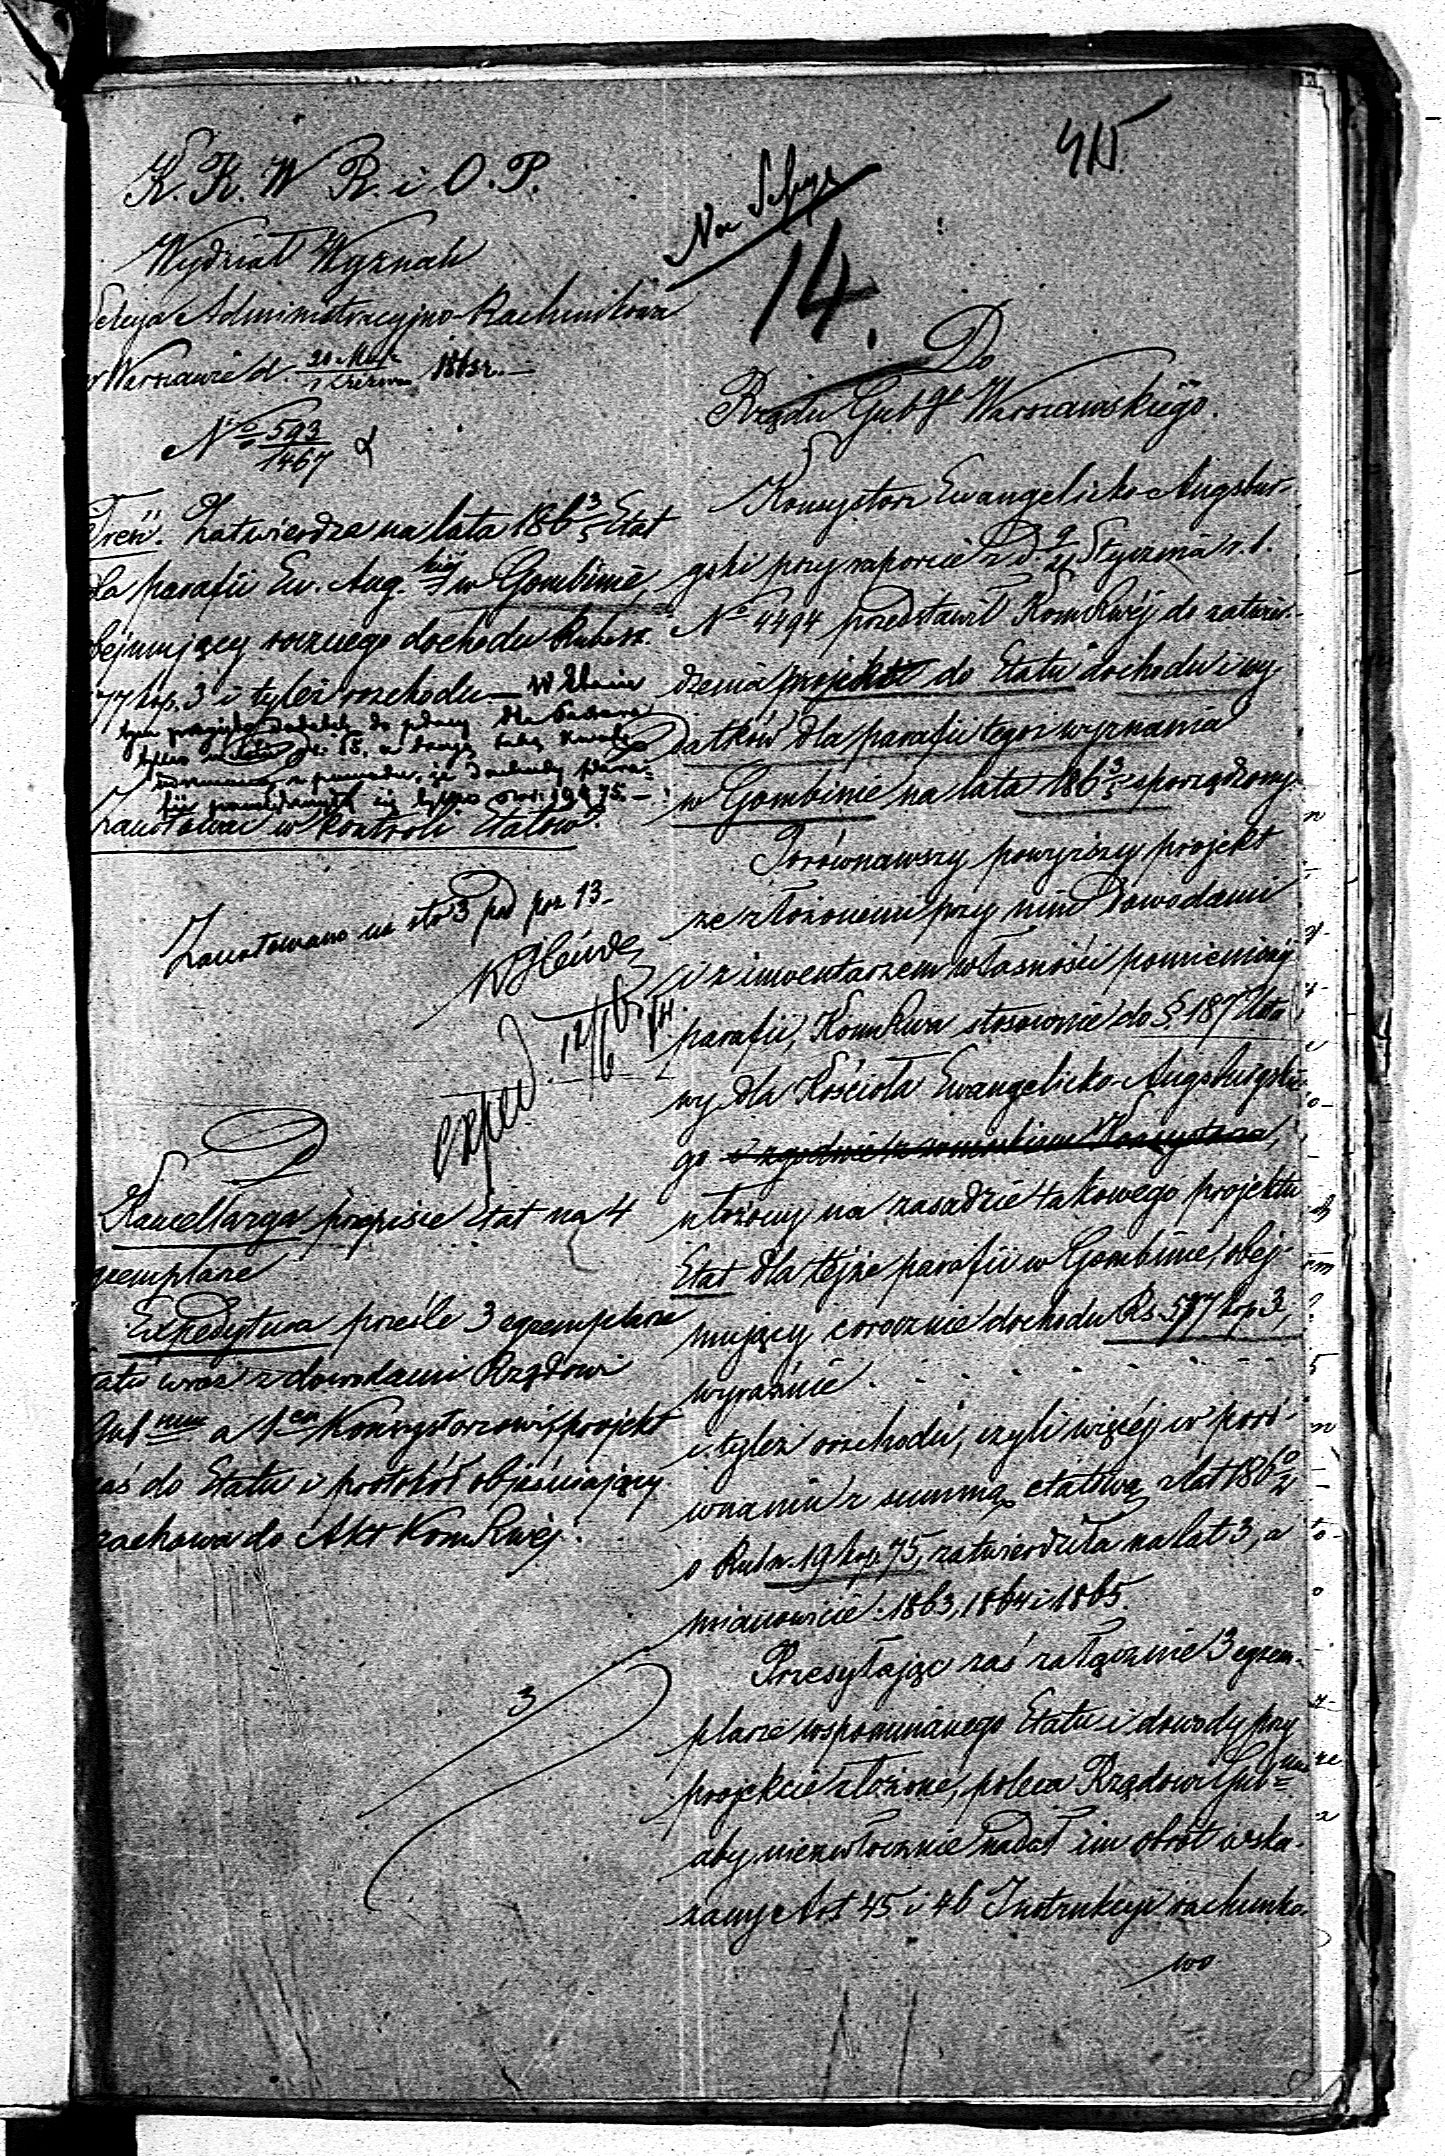 415.
K. K. W R. i O. P.
Wydział Wyznań
Sekcja Administracyjno-Rachunkowa
w Warszawie d. 20 Maja / 1 Czerwca 1863 r. —
No 593/1467
Na Sessye
14.
Treść. Zatwierdza na lata 186 3/5 Etat
dla parafii Ew. Aug. kiéj w Gombinie,
obejmujący rocznego dochodu Rubsr.
577 kop. 3 i tyleż rozchodu. — W Etacie
tym przyjęto dodatek do płacy dla Pastora
tylko
rs. 15, a
tylko o rs. 19 k 75. —
Zanotować w kontroli Etatów.
Zanotowano na sto 3 pod poz 13.
exped. 12/6 63
Kancellarya przepisze Etat na 4
exemplarze
Expedytura prześle 3 egzemplarze
Etatu wraz z dowodami Rządowi
Gub nemu a 1 en Konsystorzowi, projekt
zaś do Etatu i protokół objaśniający
zachowa do Akt Kom. Rwéj.
3
Do
Rządu Gub go Warszawskiego.
Konsystorz Ewangelicko-Augsbur-
gski przy raporcie z d. 9/21 Stycznia r. b.
No 4494 przedstawił Kom Rwéj do zatwier-
dzenia projekt do Etatu dochodu i wy-
datków dla parafii tegoż wyznania
w Gombinie na lata 186 3/5 sporządzony.
Porównawszy powyższy projekt
ze złożonemi przy nim dowodami
i z inwentarzem własności pomienionéj
parafii, Kom Rwa stosownie do §. 187 Usta
wy dla Kościoła Ewangelicko-Augsburgskie
go i zgodnie z wnioskiem Konsystorza,
ułożony na zasadzie takowego projektu
Etat dla téjże parafii w Gombinie, obej-
mujący corocznie dochodu Rs. 577 kop. 3,
wyraźnie . . . . . . .
i tyleż rozchodu, czyli więcéj w poró-
wnaniu z summą etatową z lat 186 0/2
o Rubr. 19 kop. 75, zatwierdziła na lat 3, a
mianowicie: 1863, 1864 i 1865.
Przesyłając zaś załącznie 3 egzem-
plarze wspomnianego Etatu i dowody przy
projekcie złożone, poleca Rządowi Gub nemu
aby niezwłocznie nadał im obrót wska-
zany Art 45 i 46 Instrukcyi rachunko-
wo